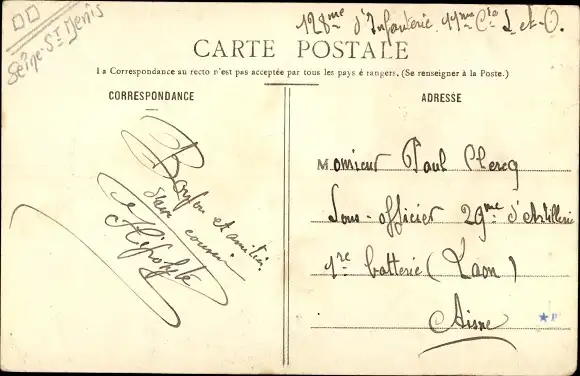 Seine-St Denis
128me d'Infanterie. 11me Cie
CARTE POSTALE
La Correspondance au recto n'est pas acceptée par tous les pays é rangers. (Se renseigner à la Poste.)
CORRESPONDANCE
et amitiés
cousin
Hipolyte
ADRESSE
Monsieur Paul Clercq
Sous-officier 29me d'Artillerie
1re batterie (Laon)
Aisne